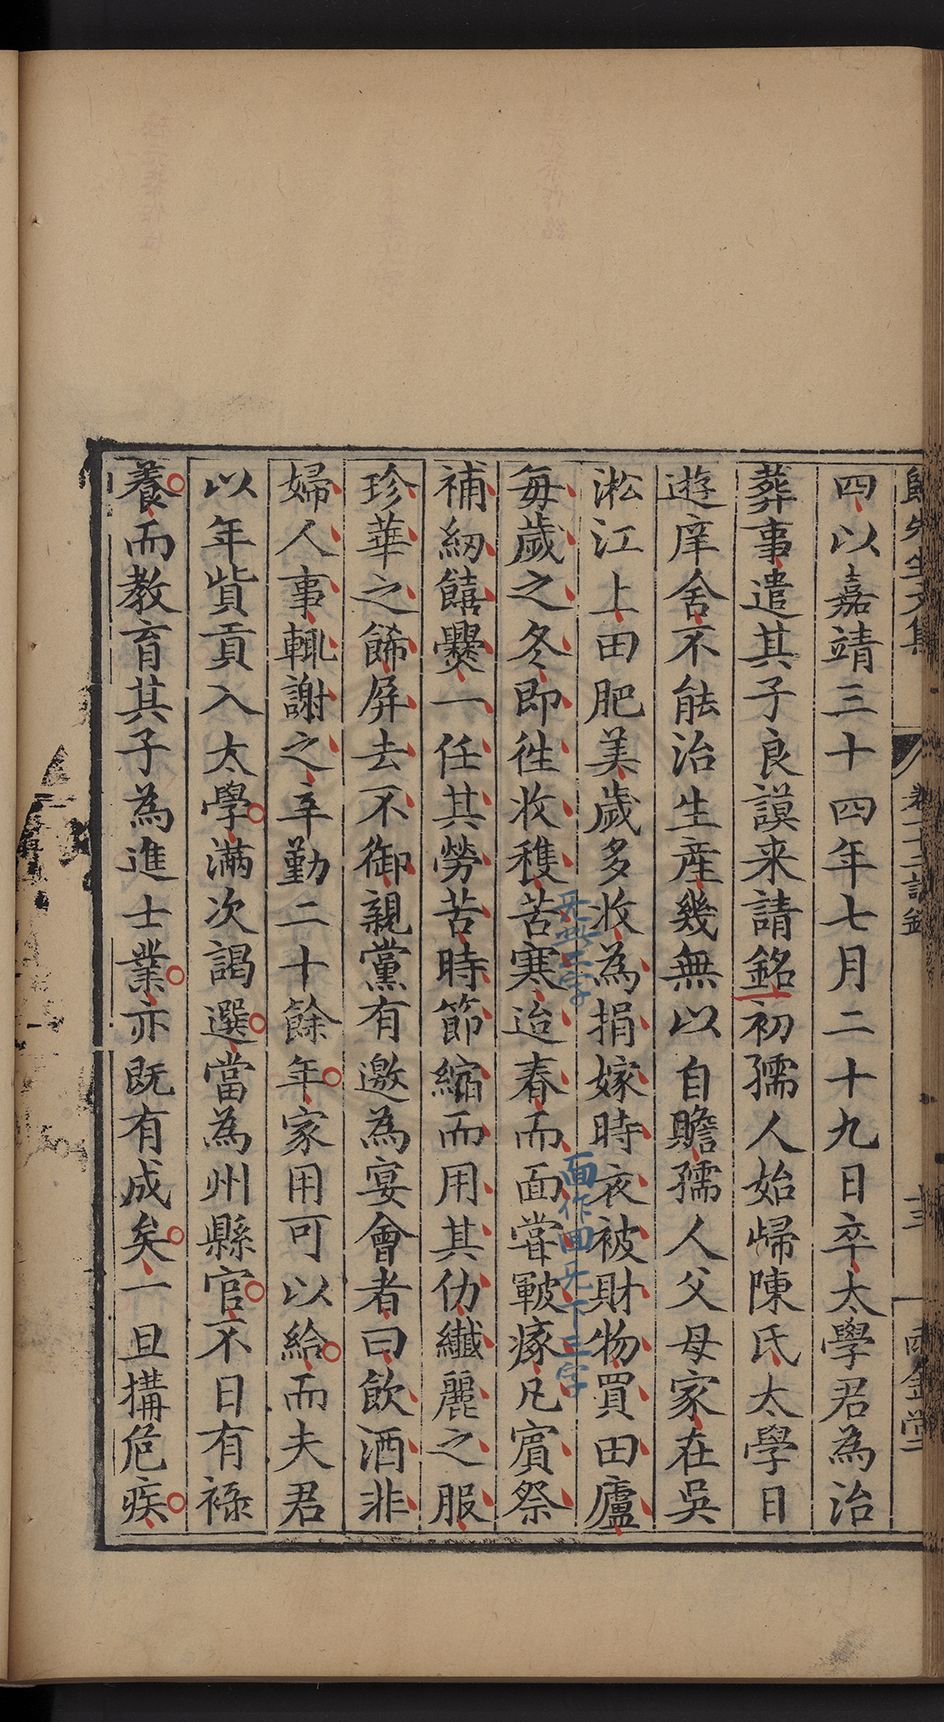 歸先生文集 卷二十二誌銘 十三 雨金堂
四以嘉靖三十四年七月二十九日卒太學君為治
葬事遣其子良謨来請銘初孺人始歸陳氏太學日
遊庠舍不能治生產幾無以自贍孺人父母家在吳
淞江上田肥美歲多收為捐嫁時衣被財物買田廬
每歲之冬即徃收穫苦寒迨春而面嘗皸瘃凡賓祭
補紉饎爨一任其勞苦時節縮而用其仂纖麗之服
珍華之餙屏去不御親黨有邀為宴會者曰飲酒非
婦人事輒謝之辛勤二十餘年家用可以給而夫君
以年貲貢入太學滿次謁選當為州縣官不日有祿
養而教育其子為進士業亦既有成矣一旦搆危疾
无此三字
面作回无下三字